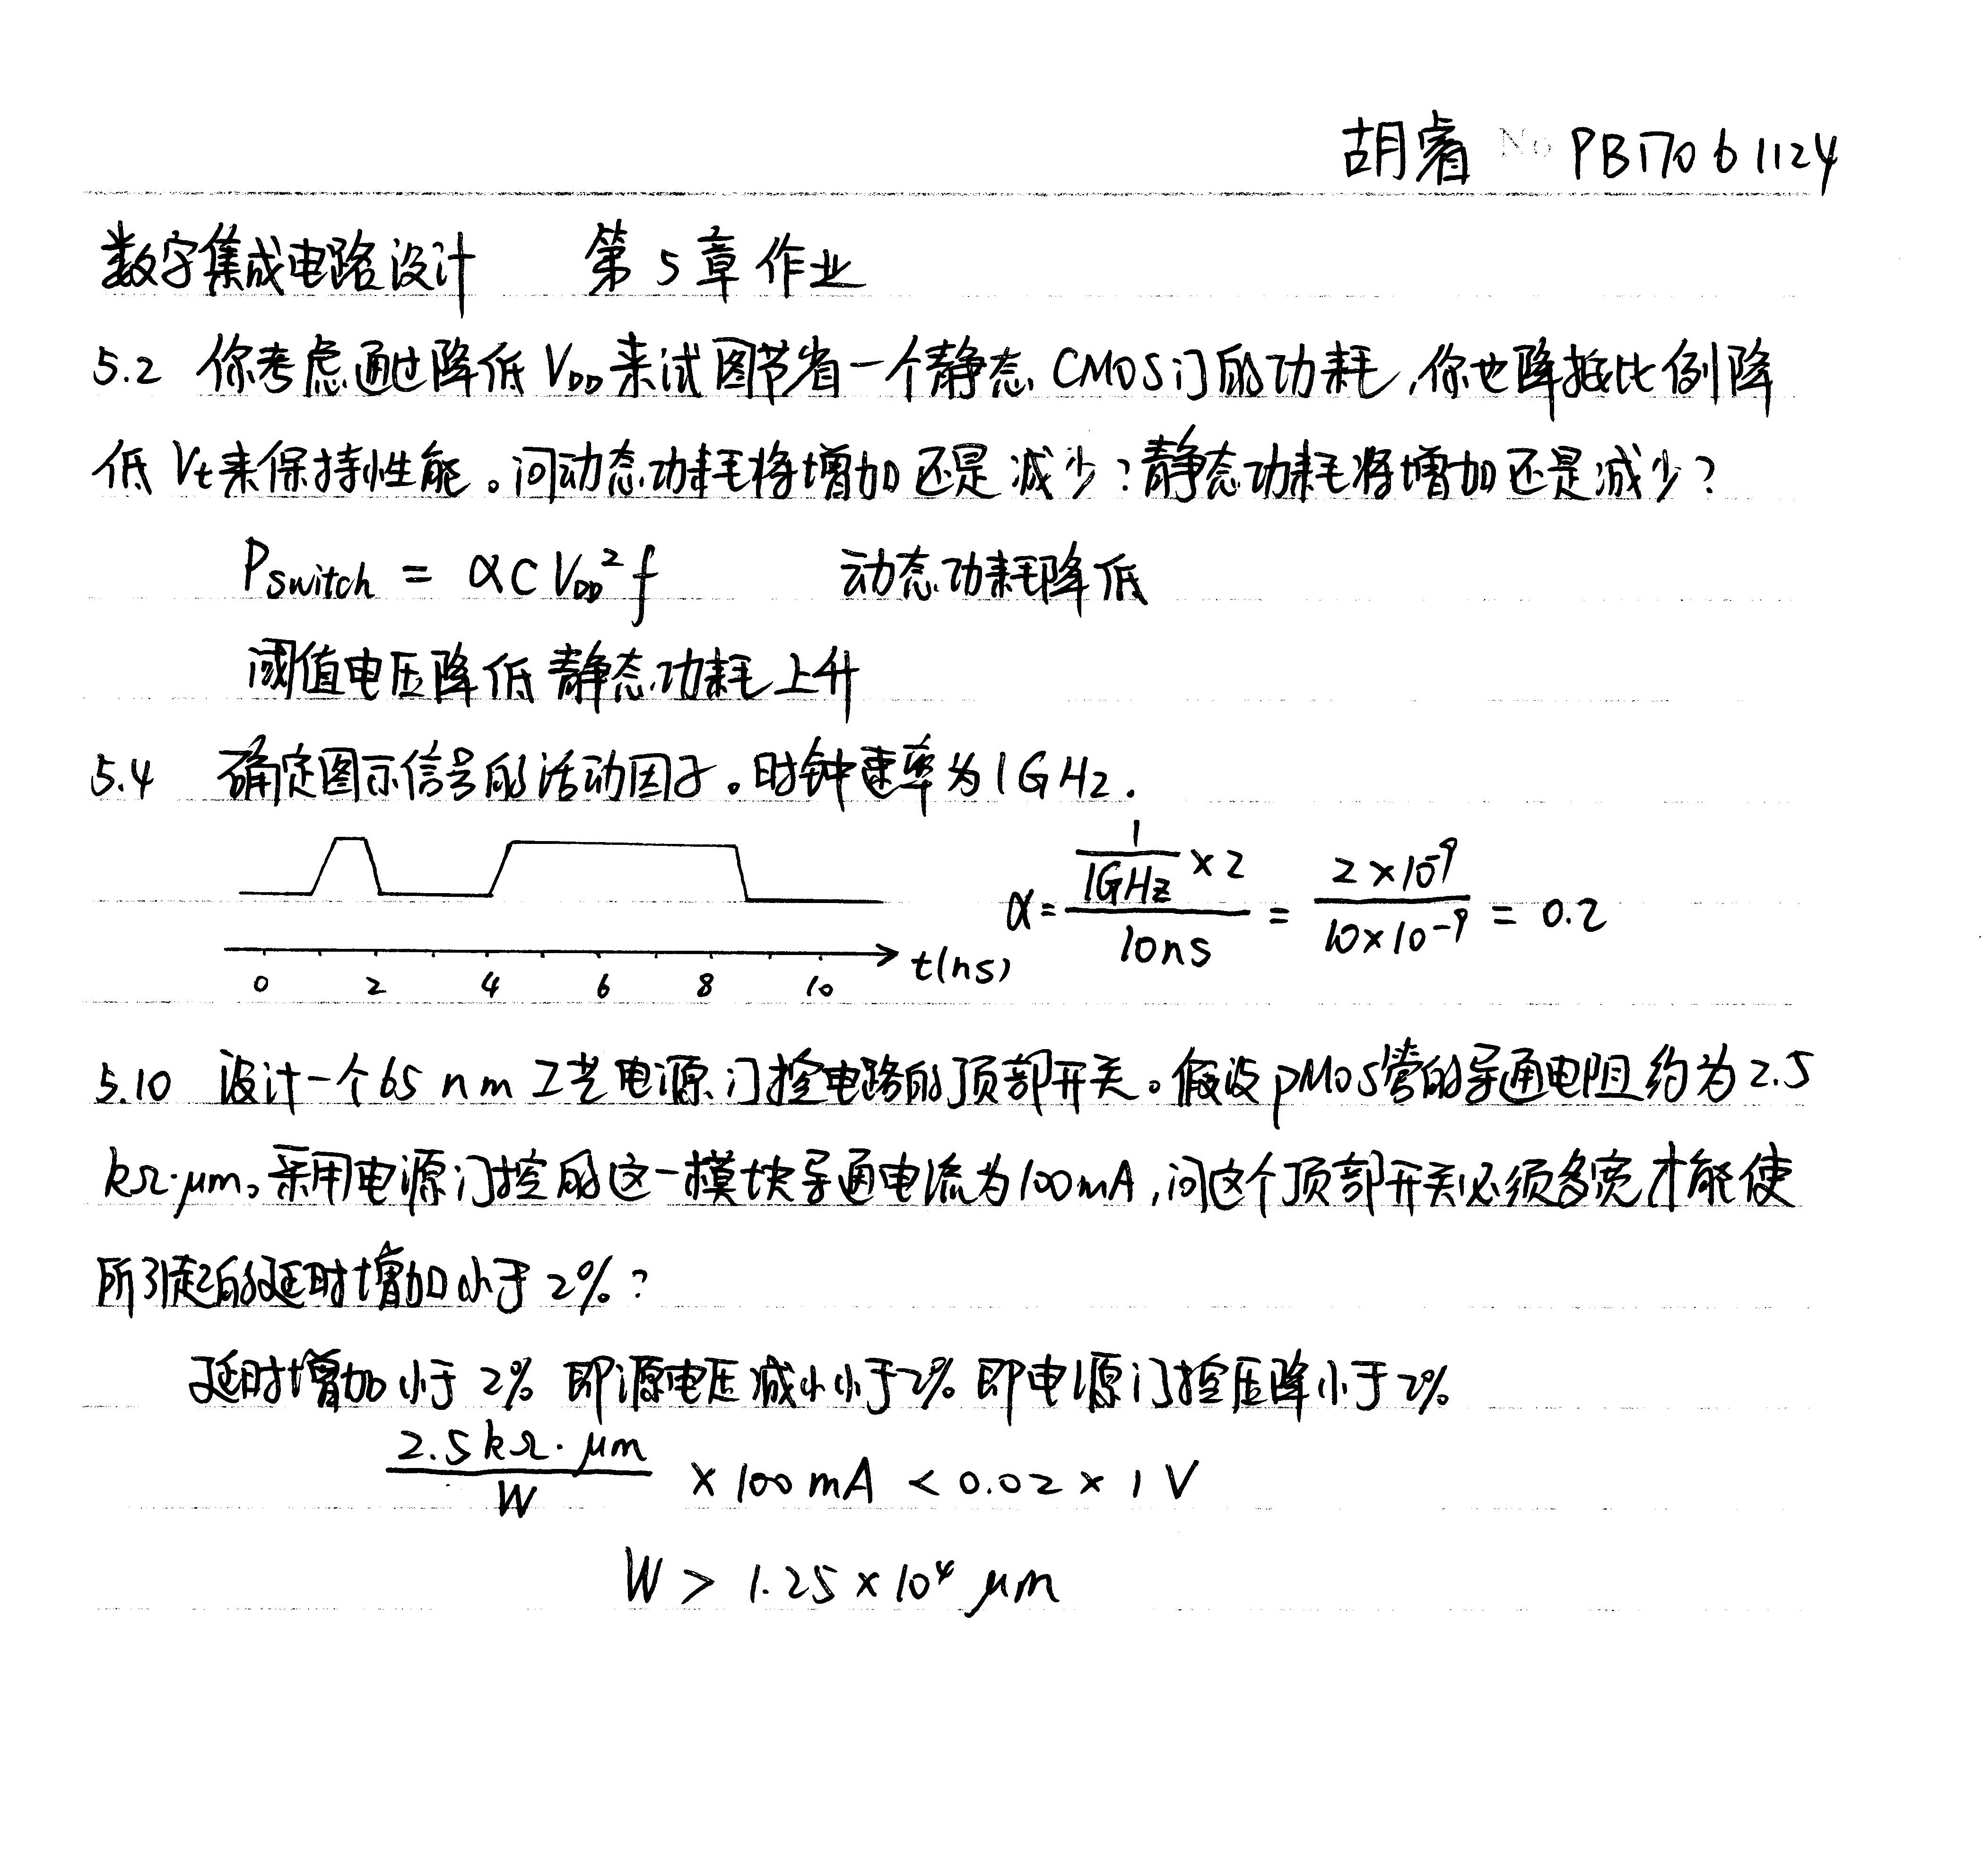 胡睿 No PB17061124
数字集成电路设计 第5章作业
5.2 你考虑通过降低 V_DD 来试图节省一个静态 CMOS门的功耗,你也降按比例降
低 Vt来保持性能。问动态功耗将增加还是减少?静态功耗将增加还是减少?
P_switch = αC V_DD² f 动态功耗降低
阈值电压降低 静态功耗上升
5.4 确定图示信号的活动因子。时钟速率为1GHz.
α = (1/1GHz × 2)/10ns = (2×10⁻⁹)/(10×10⁻⁹) = 0.2
0 2 4 6 8 10 t(ns)
5.10 设计一个65 nm 工艺电源门控电路的顶部开关。假设pMOS管的导通电阻约为2.5
kΩ·μm。采用电源门控的这一模块导通电流为100mA,问这个顶部开关必须多宽才能使
所引起的延时增加小于2%?
延时增加小于2% 即源电压减小小于2% 即电源门控压降小于2%
2.5kΩ·μm/W × 100mA < 0.02 × 1 V
W > 1.25×10⁴ μm